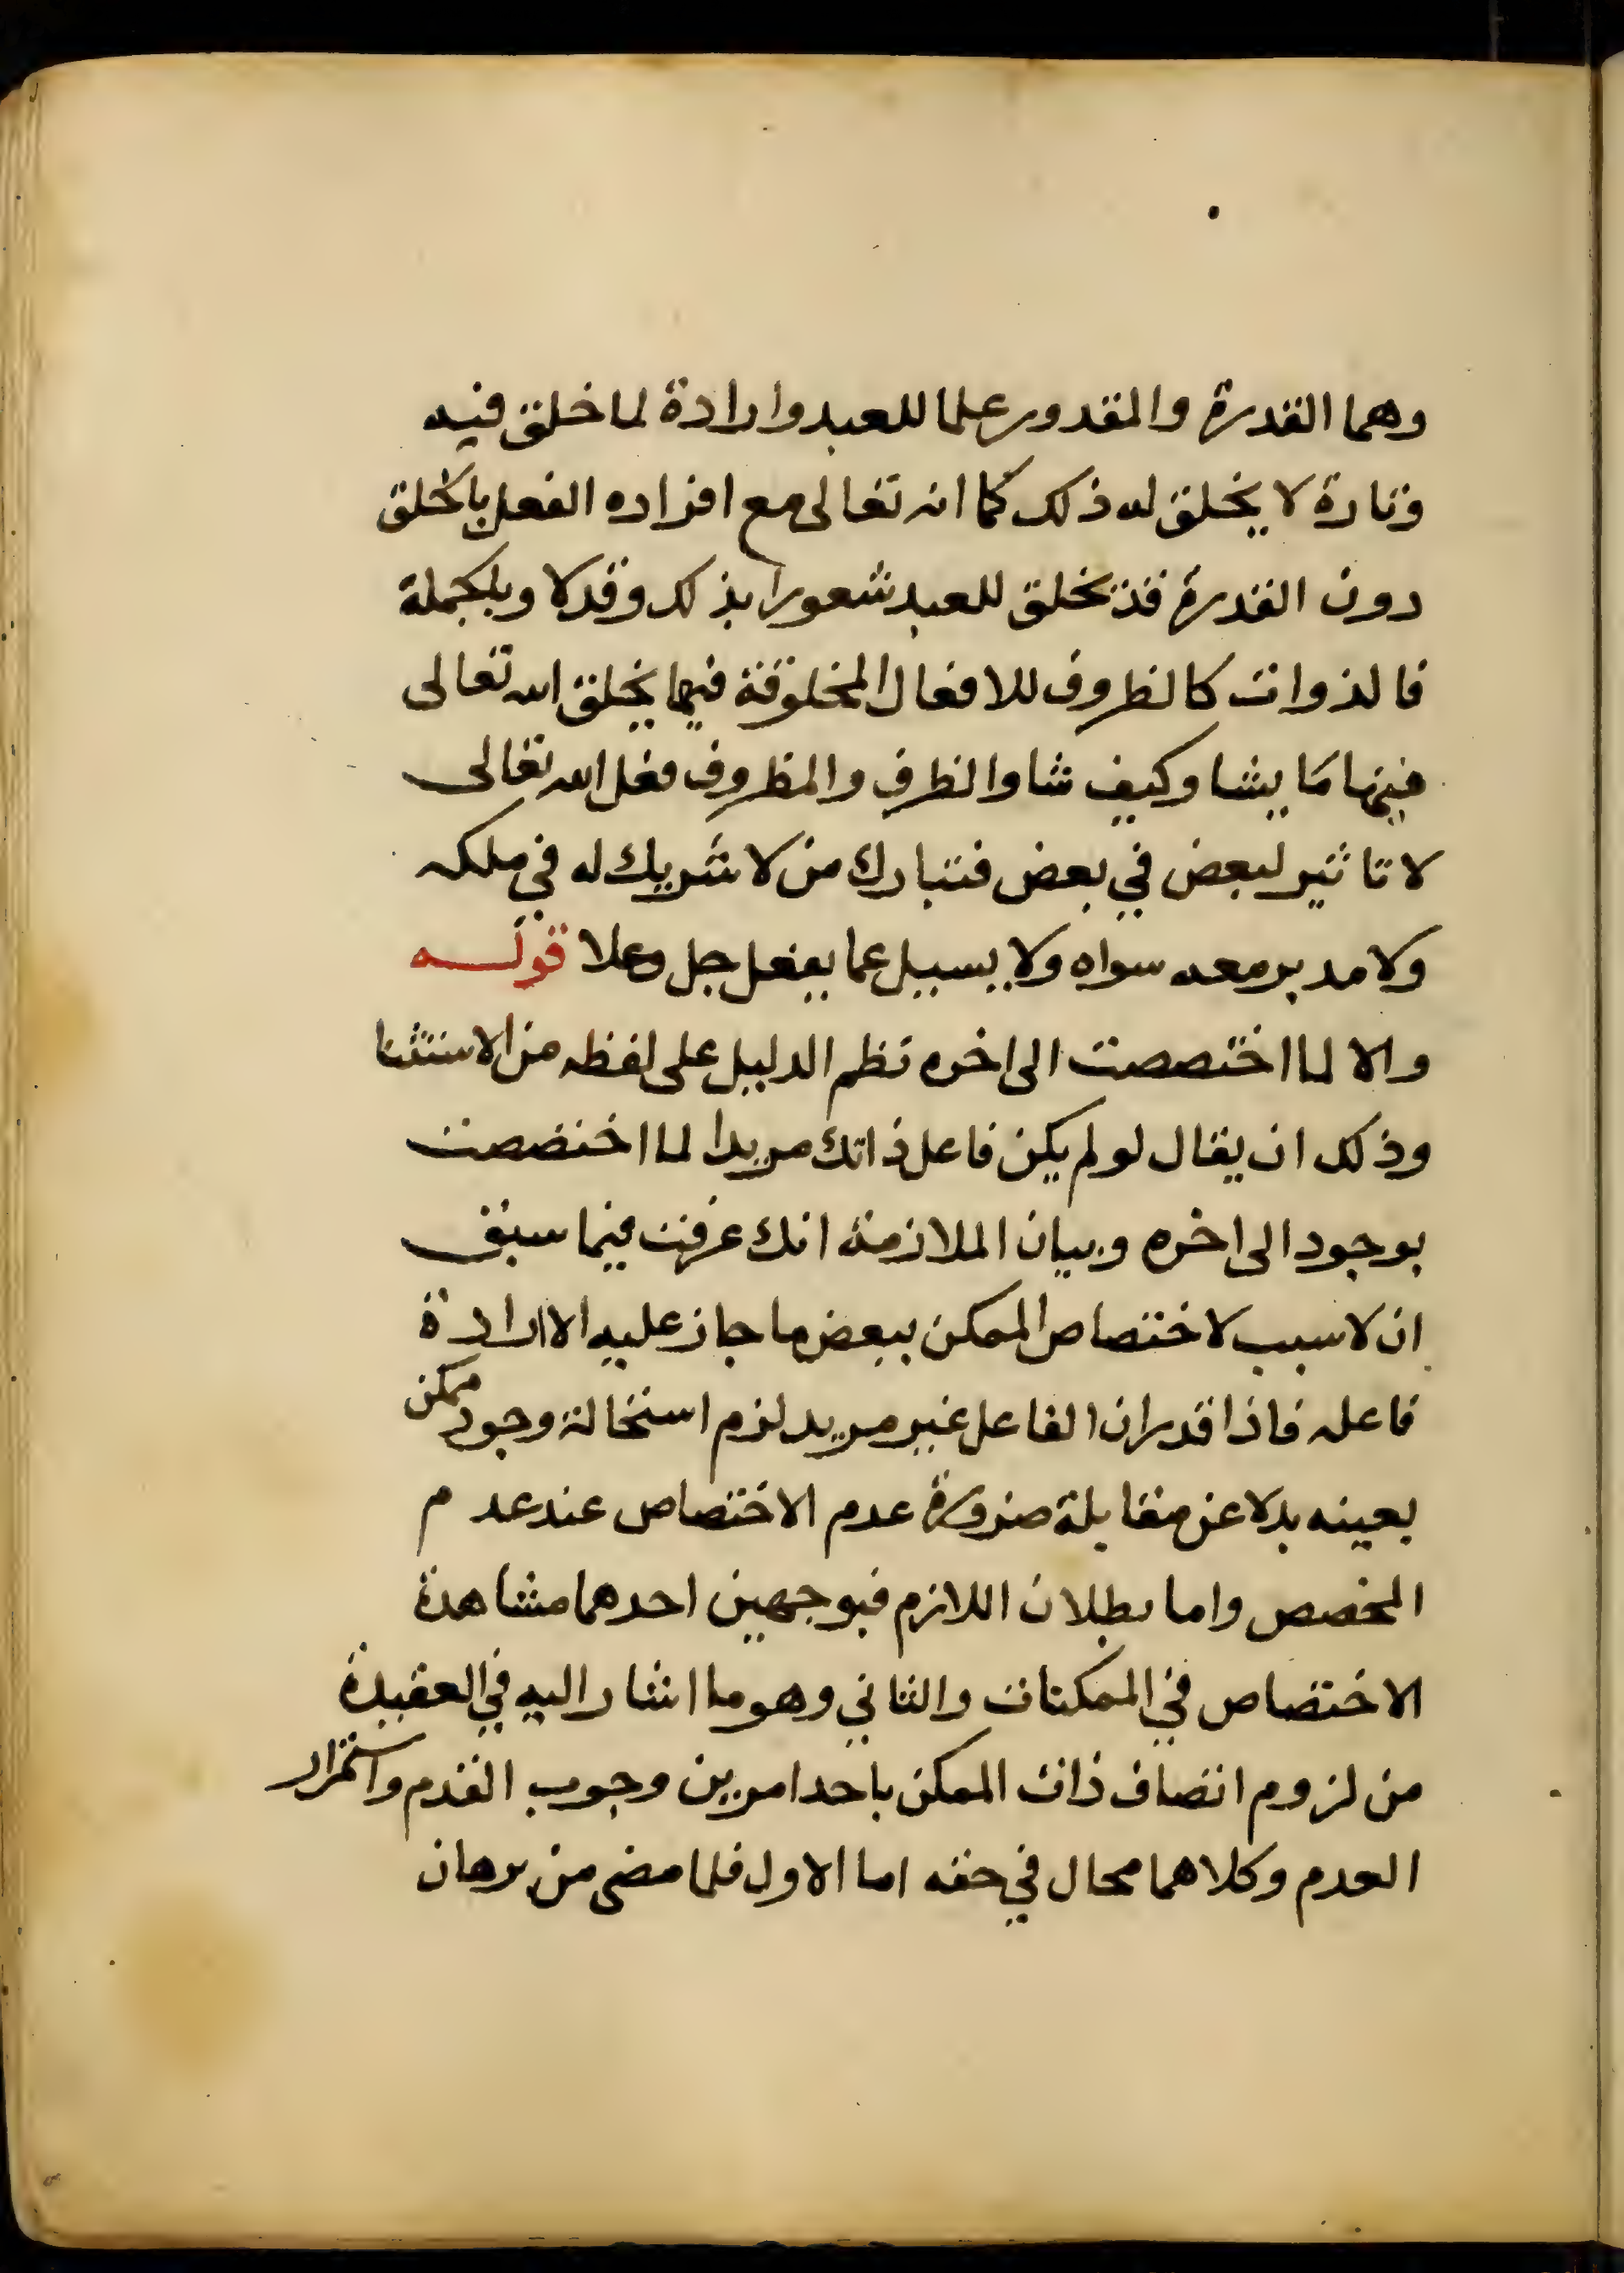 وهما القدرة والمقدور علما للعبد وارادة لما خلق فيه
وتارة لا يخلق له ذلك كما انه تعالى مع افراده الفعل بالخلق
دون القدرة قد يخلق للعبد شعورا بذلك وقد لا وبالجملة
فالذوات كالظروف للافعال المخلوقة فيها يخلق الله تعالى
فيها ما يشا وكيف شا والظرف والمظروف فعل الله تعالى
لا تاثير لبعض في بعض فتبارك من لا شريك له في ملكه
ولا مدبر معه سواه ولا يسيل عما يفعل جل وعلا قوله
والا لما اختصصت الى اخره نظم الدليل على لفظه من الاستثنا
وذلك ان يقال لو لم يكن فاعل ذاتك مريدا لما اختصصت
بوجود الى اخره وبيان الملازمة انك عرفت فيما سبق
ان لا سبب لاختصاص الممكن ببعض ما جاز عليه الا ارادة
فاعله فاذا قدر ان الفاعل غير مريد لزم استحالة وجود ممكن
بعينه بدلا عن مقابلة ضرورة عدم الاختصاص عند عدم
المخصص واما بطلان اللازم فبوجهين احدهما مشاهدة
الاختصاص في الممكنات والثاني وهو ما اشار اليه في العقيدة
من لزوم اتصاف ذات الممكن باحد امرين وجوب القدم واستمرار
العدم وكلاهما محال في حقه اما الاول فلما مضى من برهان